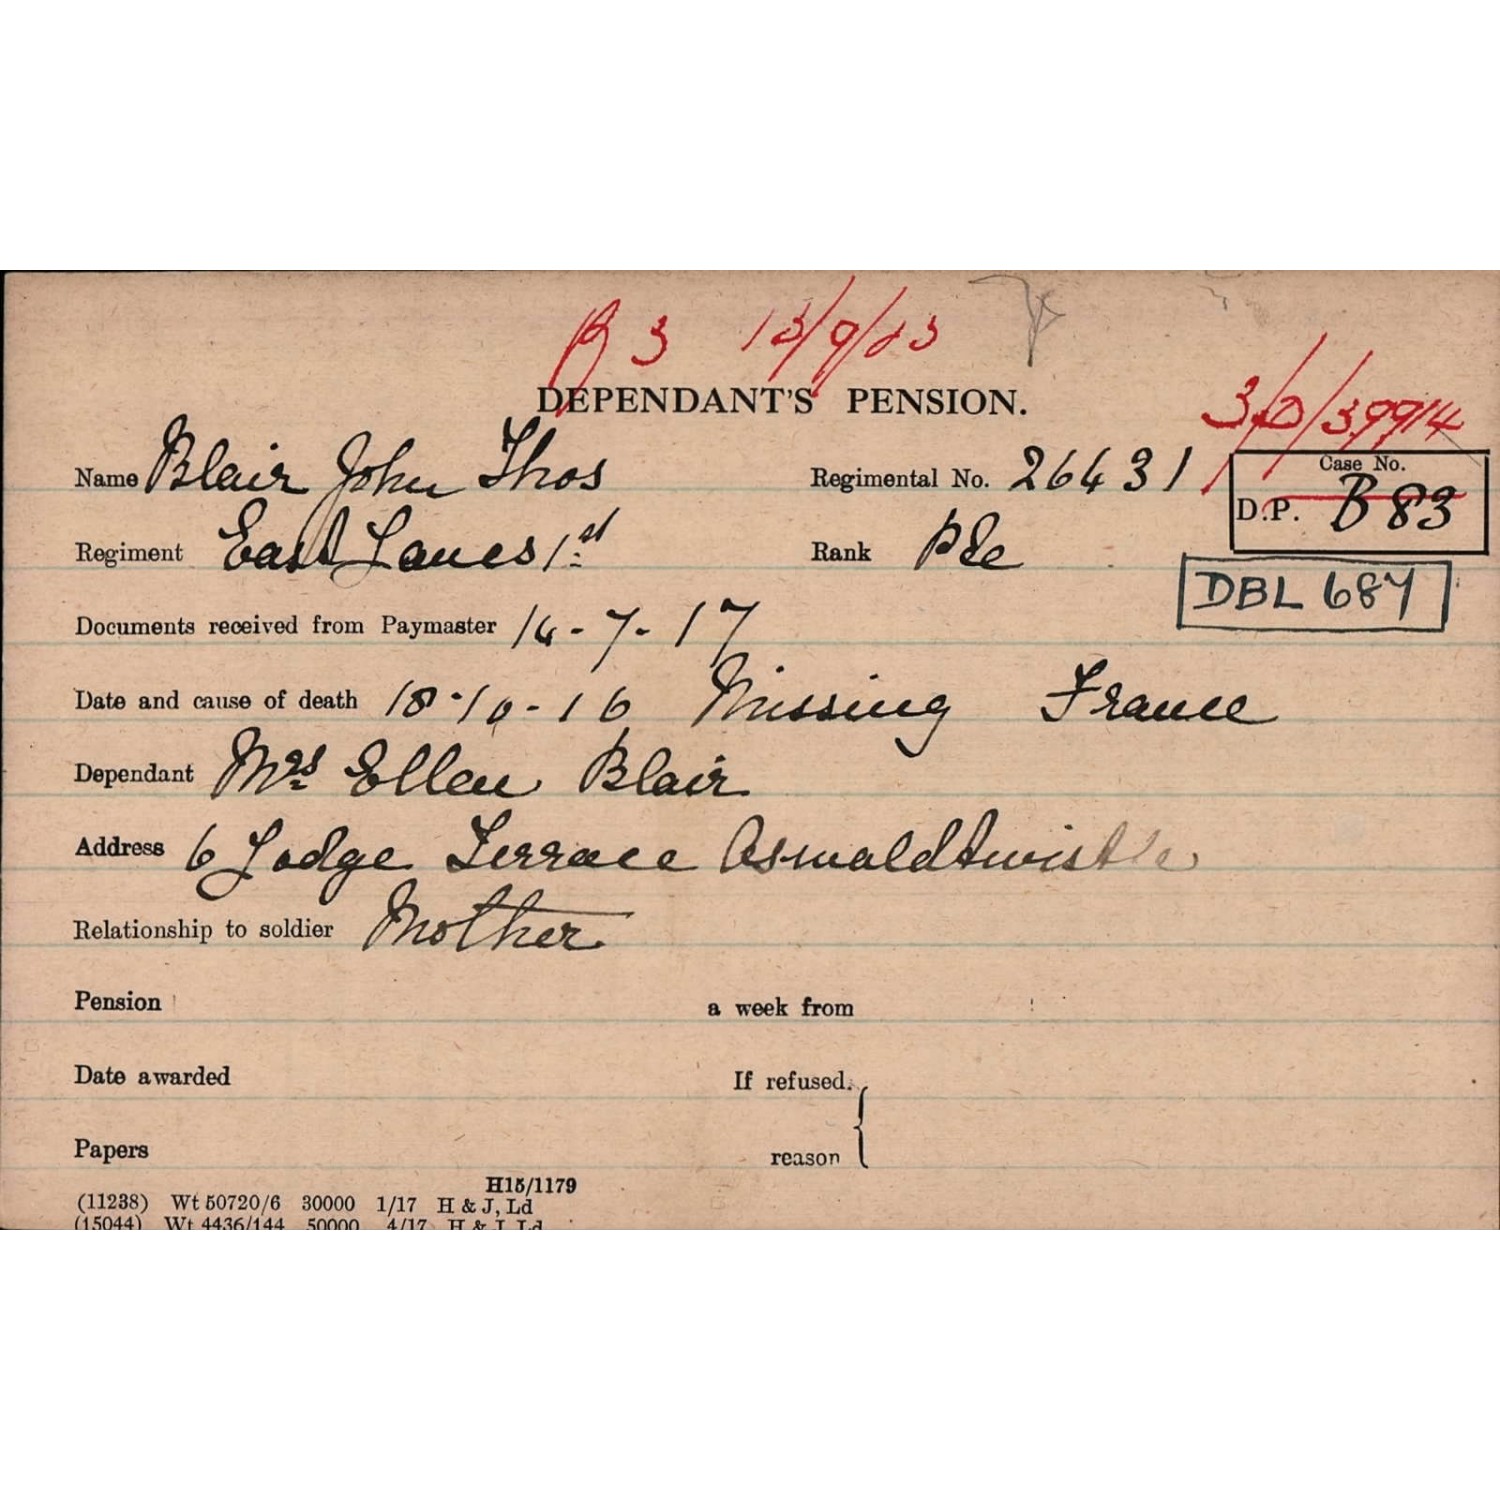 B 3 13/9/33
DEPENDANT'S PENSION.
3/D/39914
Name Blair John Thos Regimental No. 26431
Case No.
D.P. B 83
Regiment East Lancs 1st Rank Pte
DBL 687
Documents received from Paymaster 14-7-17
Date and cause of death 18-10-16 Missing France
Dependant Mrs Ellen Blair
Address 6 Lodge Terrace Oswaldtwistle
Relationship to soldier Mother
Pension a week from
Date awarded If refused.
Papers reason
H15/1179
(11238) Wt 50720/6 30000 1/17 H & J, Ld
(15044) Wt 4436/144 50000 4/17 H & J, Ld